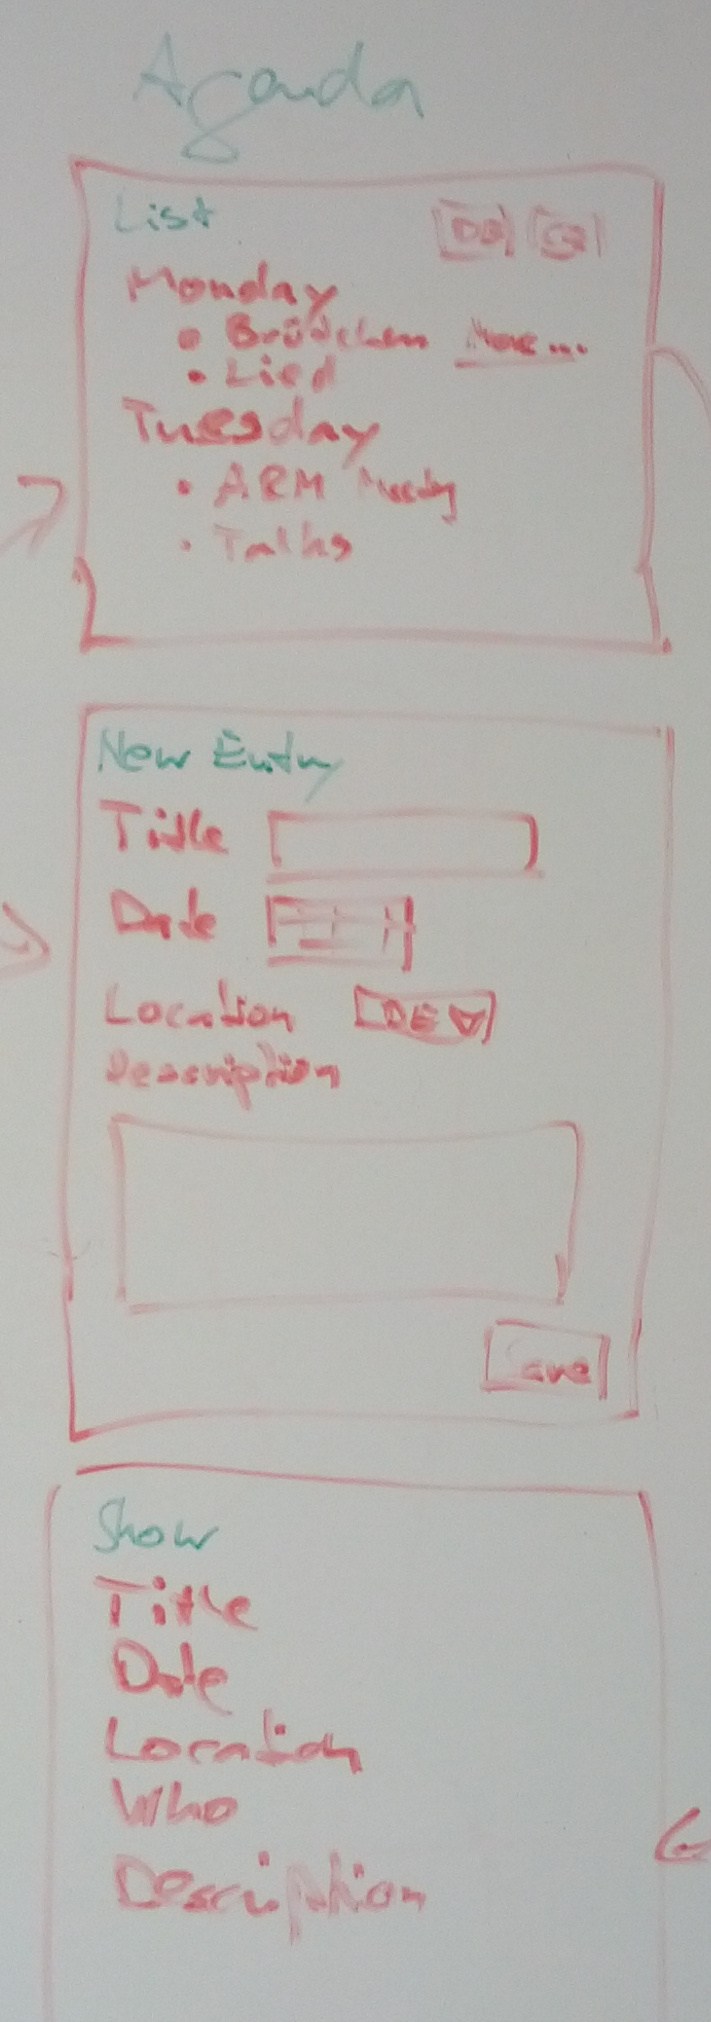 Agenda
List
Monday
• Brödchen More...
• Lied
Tuesday
• ARM Meeting
• Talks
New Entry
Title
Date
Location DE
Description
Save
Show
Title
Date
Location
Who
Description